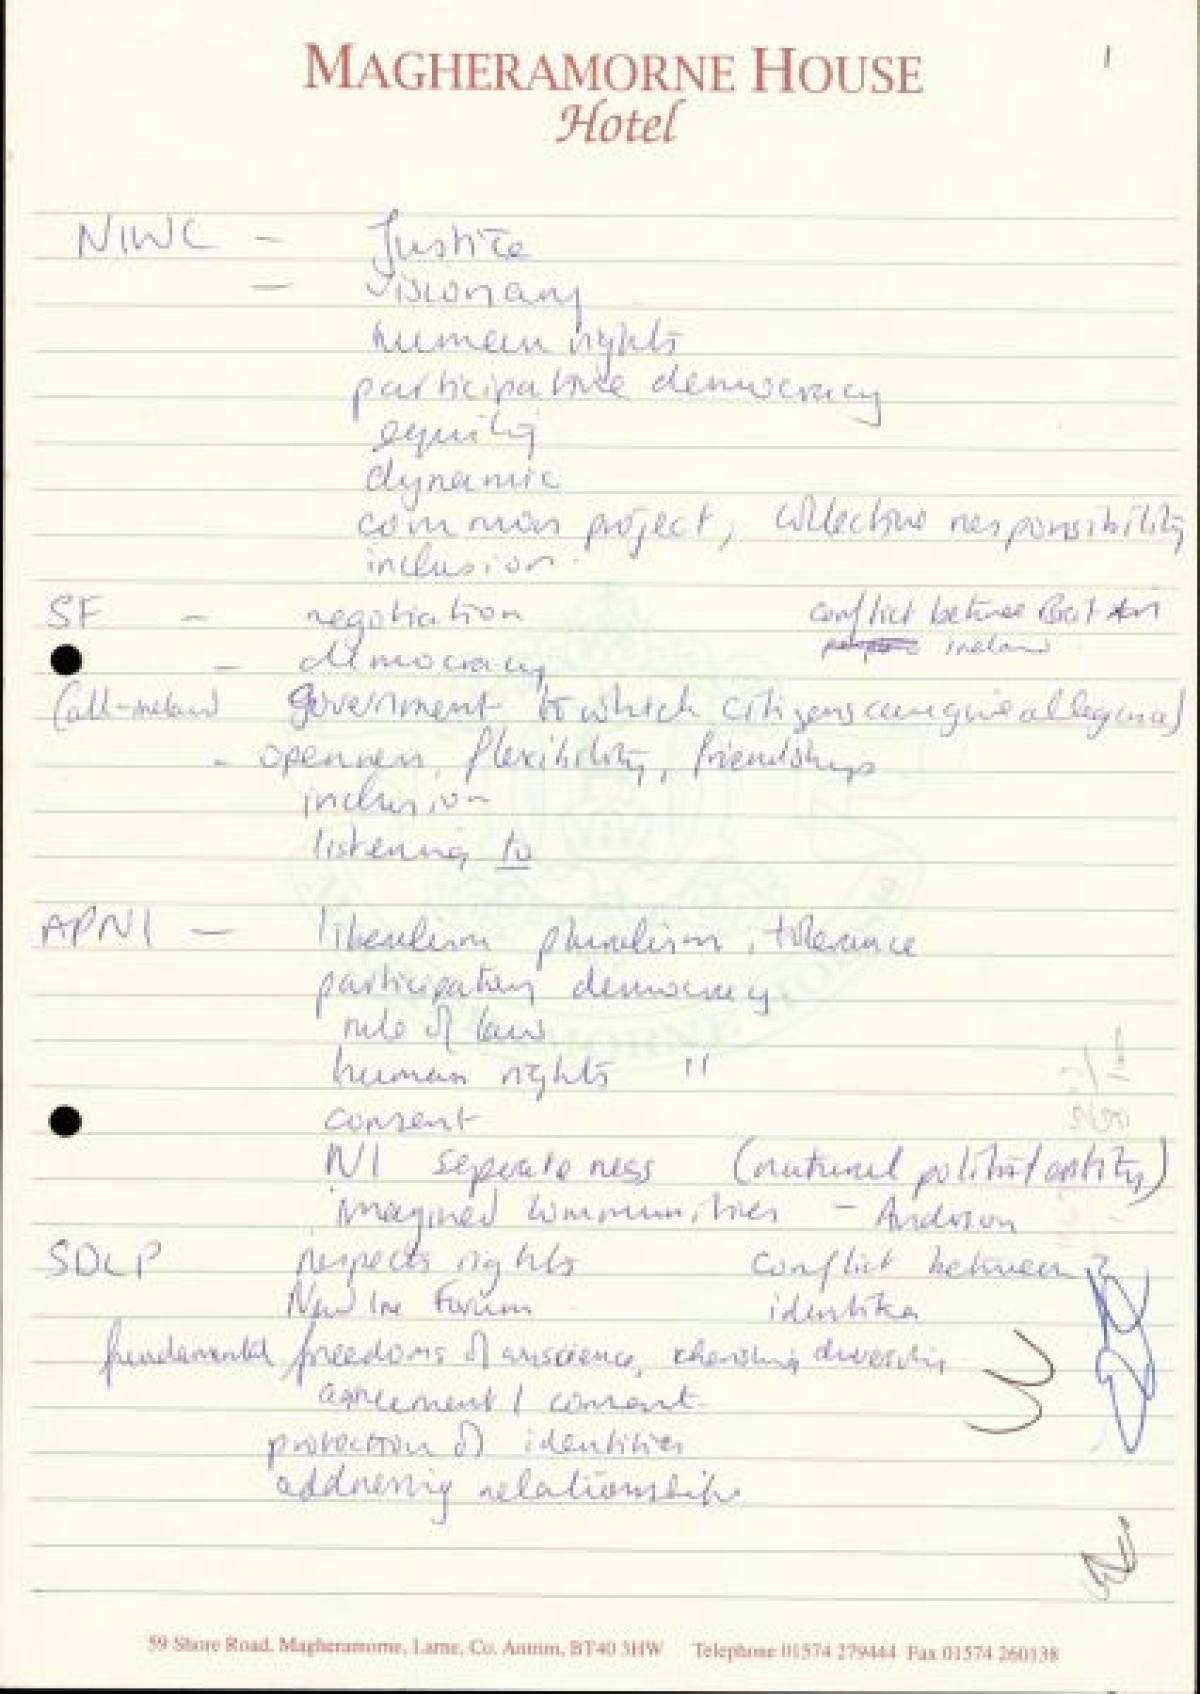 1
MAGHERAMORNE HOUSE
Hotel
NIWC - Justice
- visionary
human rights
participative democracy
equity
dynamic
common project, collective responsibility
inclusion.
SF - negotiation conflict between Brit
- democracy Ireland
(all-Ireland government to which citizens can give allegiance)
- openness, flexibility, friendships
inclusion
listening to
APNI - liberalism pluralism, tolerance
participatory democracy
rule of law
human rights "
consent
NI separateness (natural political entity)
imagined communities - Anderson
SDLP respects rights conflict between
New Ire Forum identities
fundamental freedoms of conscience, cherishing diversity
agreement / consent
protection of identities
addressing relationships
59 Shore Road, Magheramorne, Larne, Co. Antrim, BT40 3HW Telephone 01574 279444 Fax 01574 260138